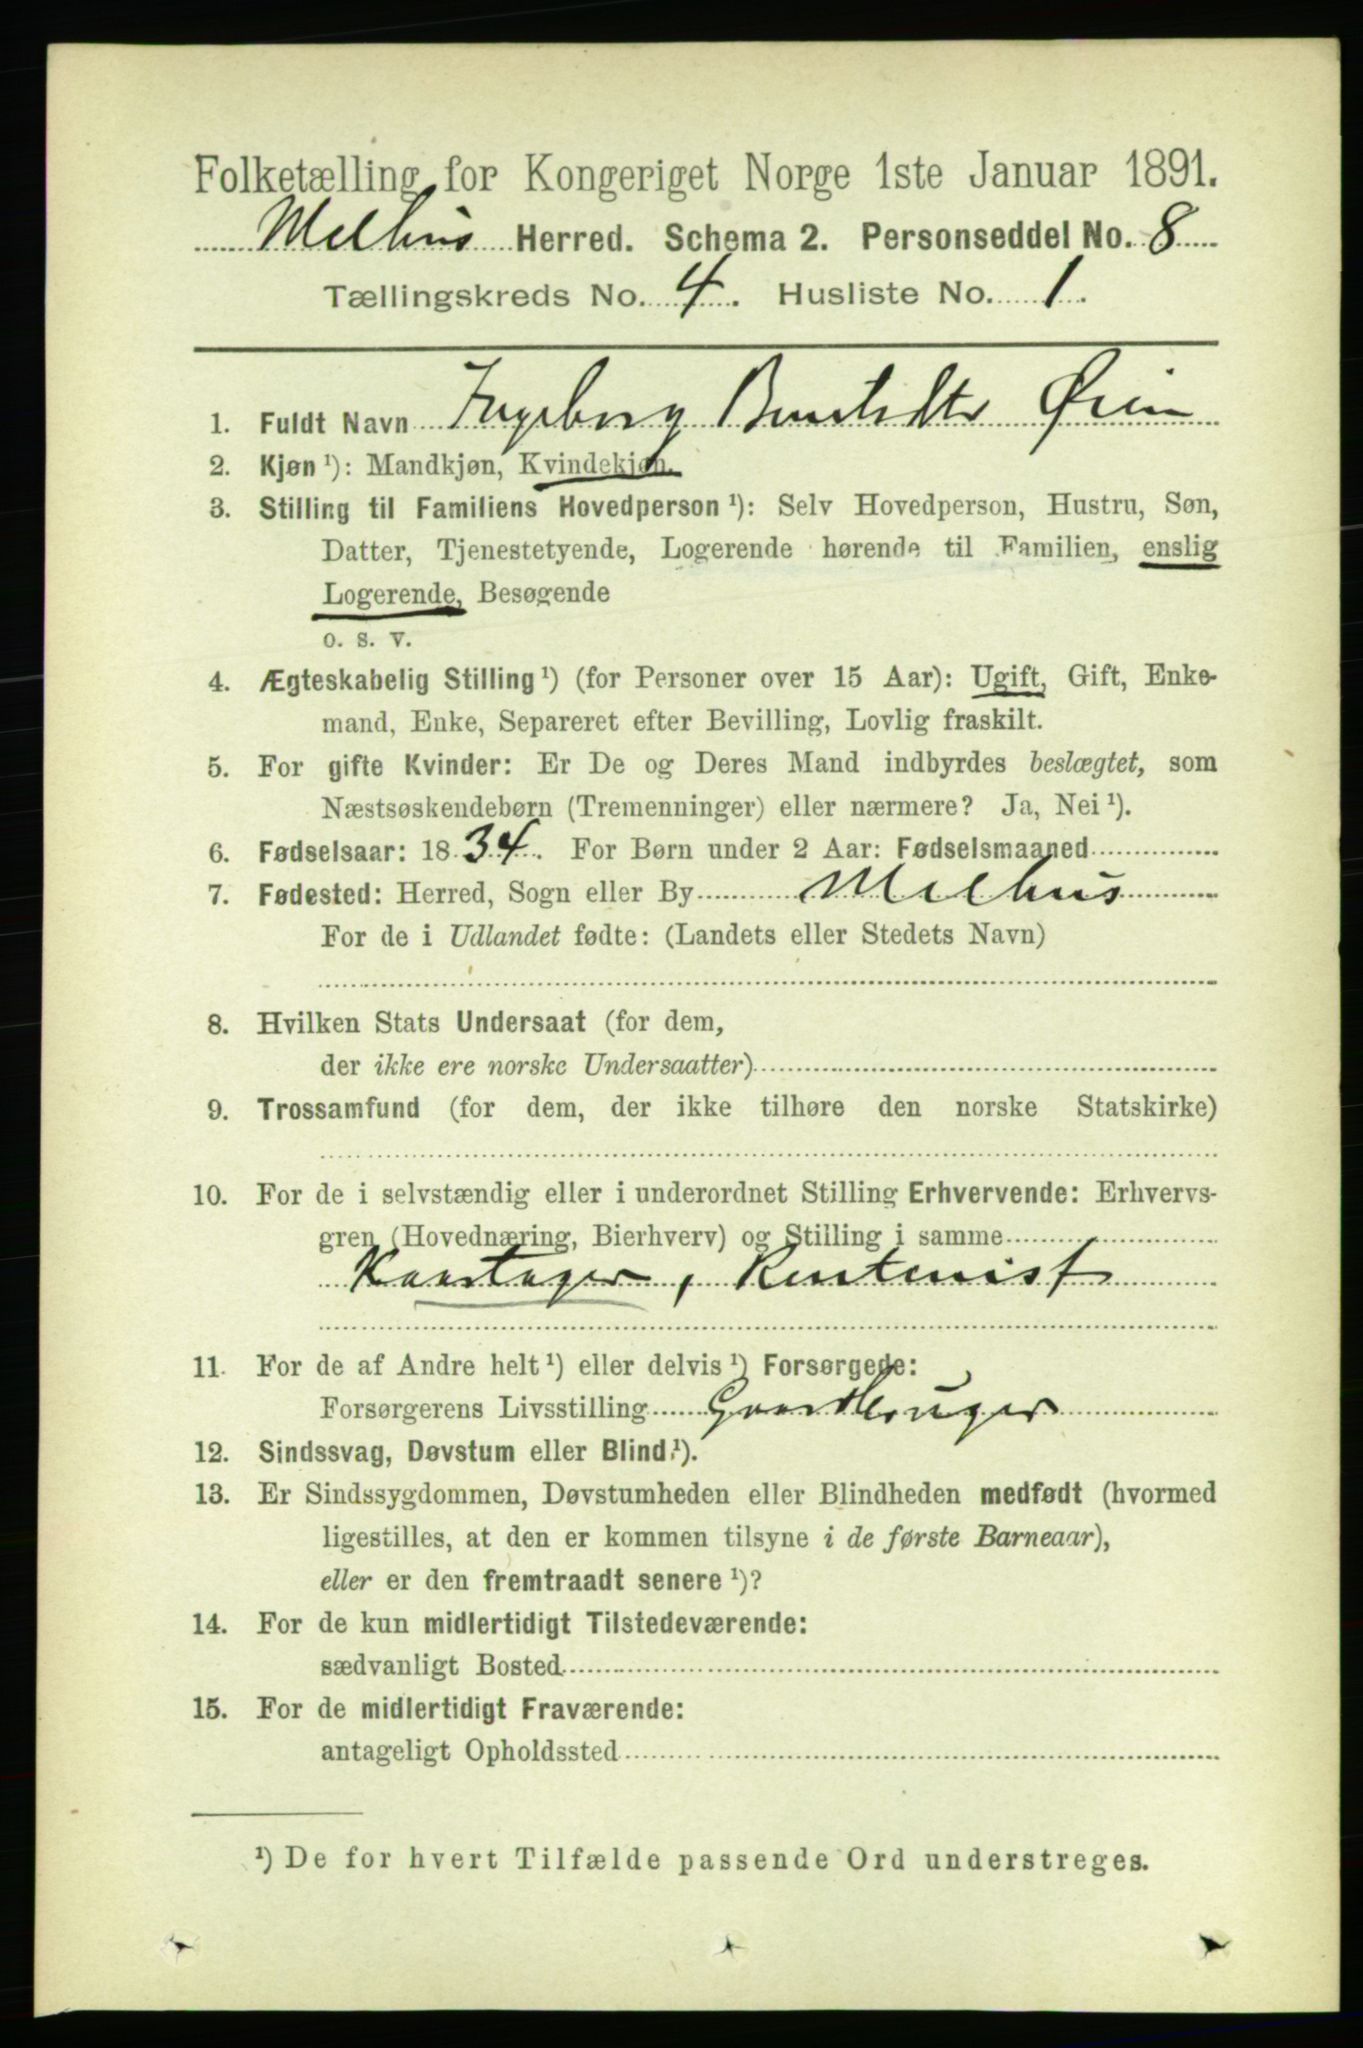 Folketælling for Kongeriget Norge 1ste Januar 1891.
Melhus Herred. Schema 2. Personseddel No. 8
Tællingskreds No. 4. Husliste No. 1.
1. Fuldt Navn Ingeborg Øien
2. Kjøn ¹): Mandkjøn, Kvindekjøn.
3. Stilling til Familiens Hovedperson ¹): Selv Hovedperson, Hustru, Søn,
Datter, Tjenestetyende, Logerende hørende til Familien, enslig
Logerende, Besøgende
o. s. v.
4. Ægteskabelig Stilling ¹) (for Personer over 15 Aar): Ugift, Gift, Enke-
mand, Enke, Separeret efter Bevilling, Lovlig fraskilt.
5. For gifte Kvinder: Er De og Deres Mand indbyrdes beslægtet, som
Næstsøskendebørn (Tremenninger) eller nærmere? Ja, Nei ¹).
6. Fødselsaar: 1834. For Børn under 2 Aar: Fødselsmaaned
7. Fødested: Herred, Sogn eller By Melhus
For de i Udlandet fødte: (Landets eller Stedets Navn)
8. Hvilken Stats Undersaat (for dem,
der ikke ere norske Undersaatter)
9. Trossamfund (for dem, der ikke tilhøre den norske Statskirke)
10. For de i selvstændig eller i underordnet Stilling Erhvervende: Erhvervs-
gren (Hovednæring, Bierhverv) og Stilling i samme
Kaartager, Rentenist
11. For de af Andre helt ¹) eller delvis ¹) Forsørgede:
Forsørgerens Livsstilling Gaardbruger
12. Sindssvag, Døvstum eller Blind ¹).
13. Er Sindssygdommen, Døvstumheden eller Blindheden medfødt (hvormed
ligestilles, at den er kommen tilsyne i de første Barneaar),
eller er den fremtraadt senere ¹)?
14. For de kun midlertidigt Tilstedeværende:
sædvanligt Bosted
15. For de midlertidigt Fraværende:
antageligt Opholdssted
¹) De for hvert Tilfælde passende Ord understreges.